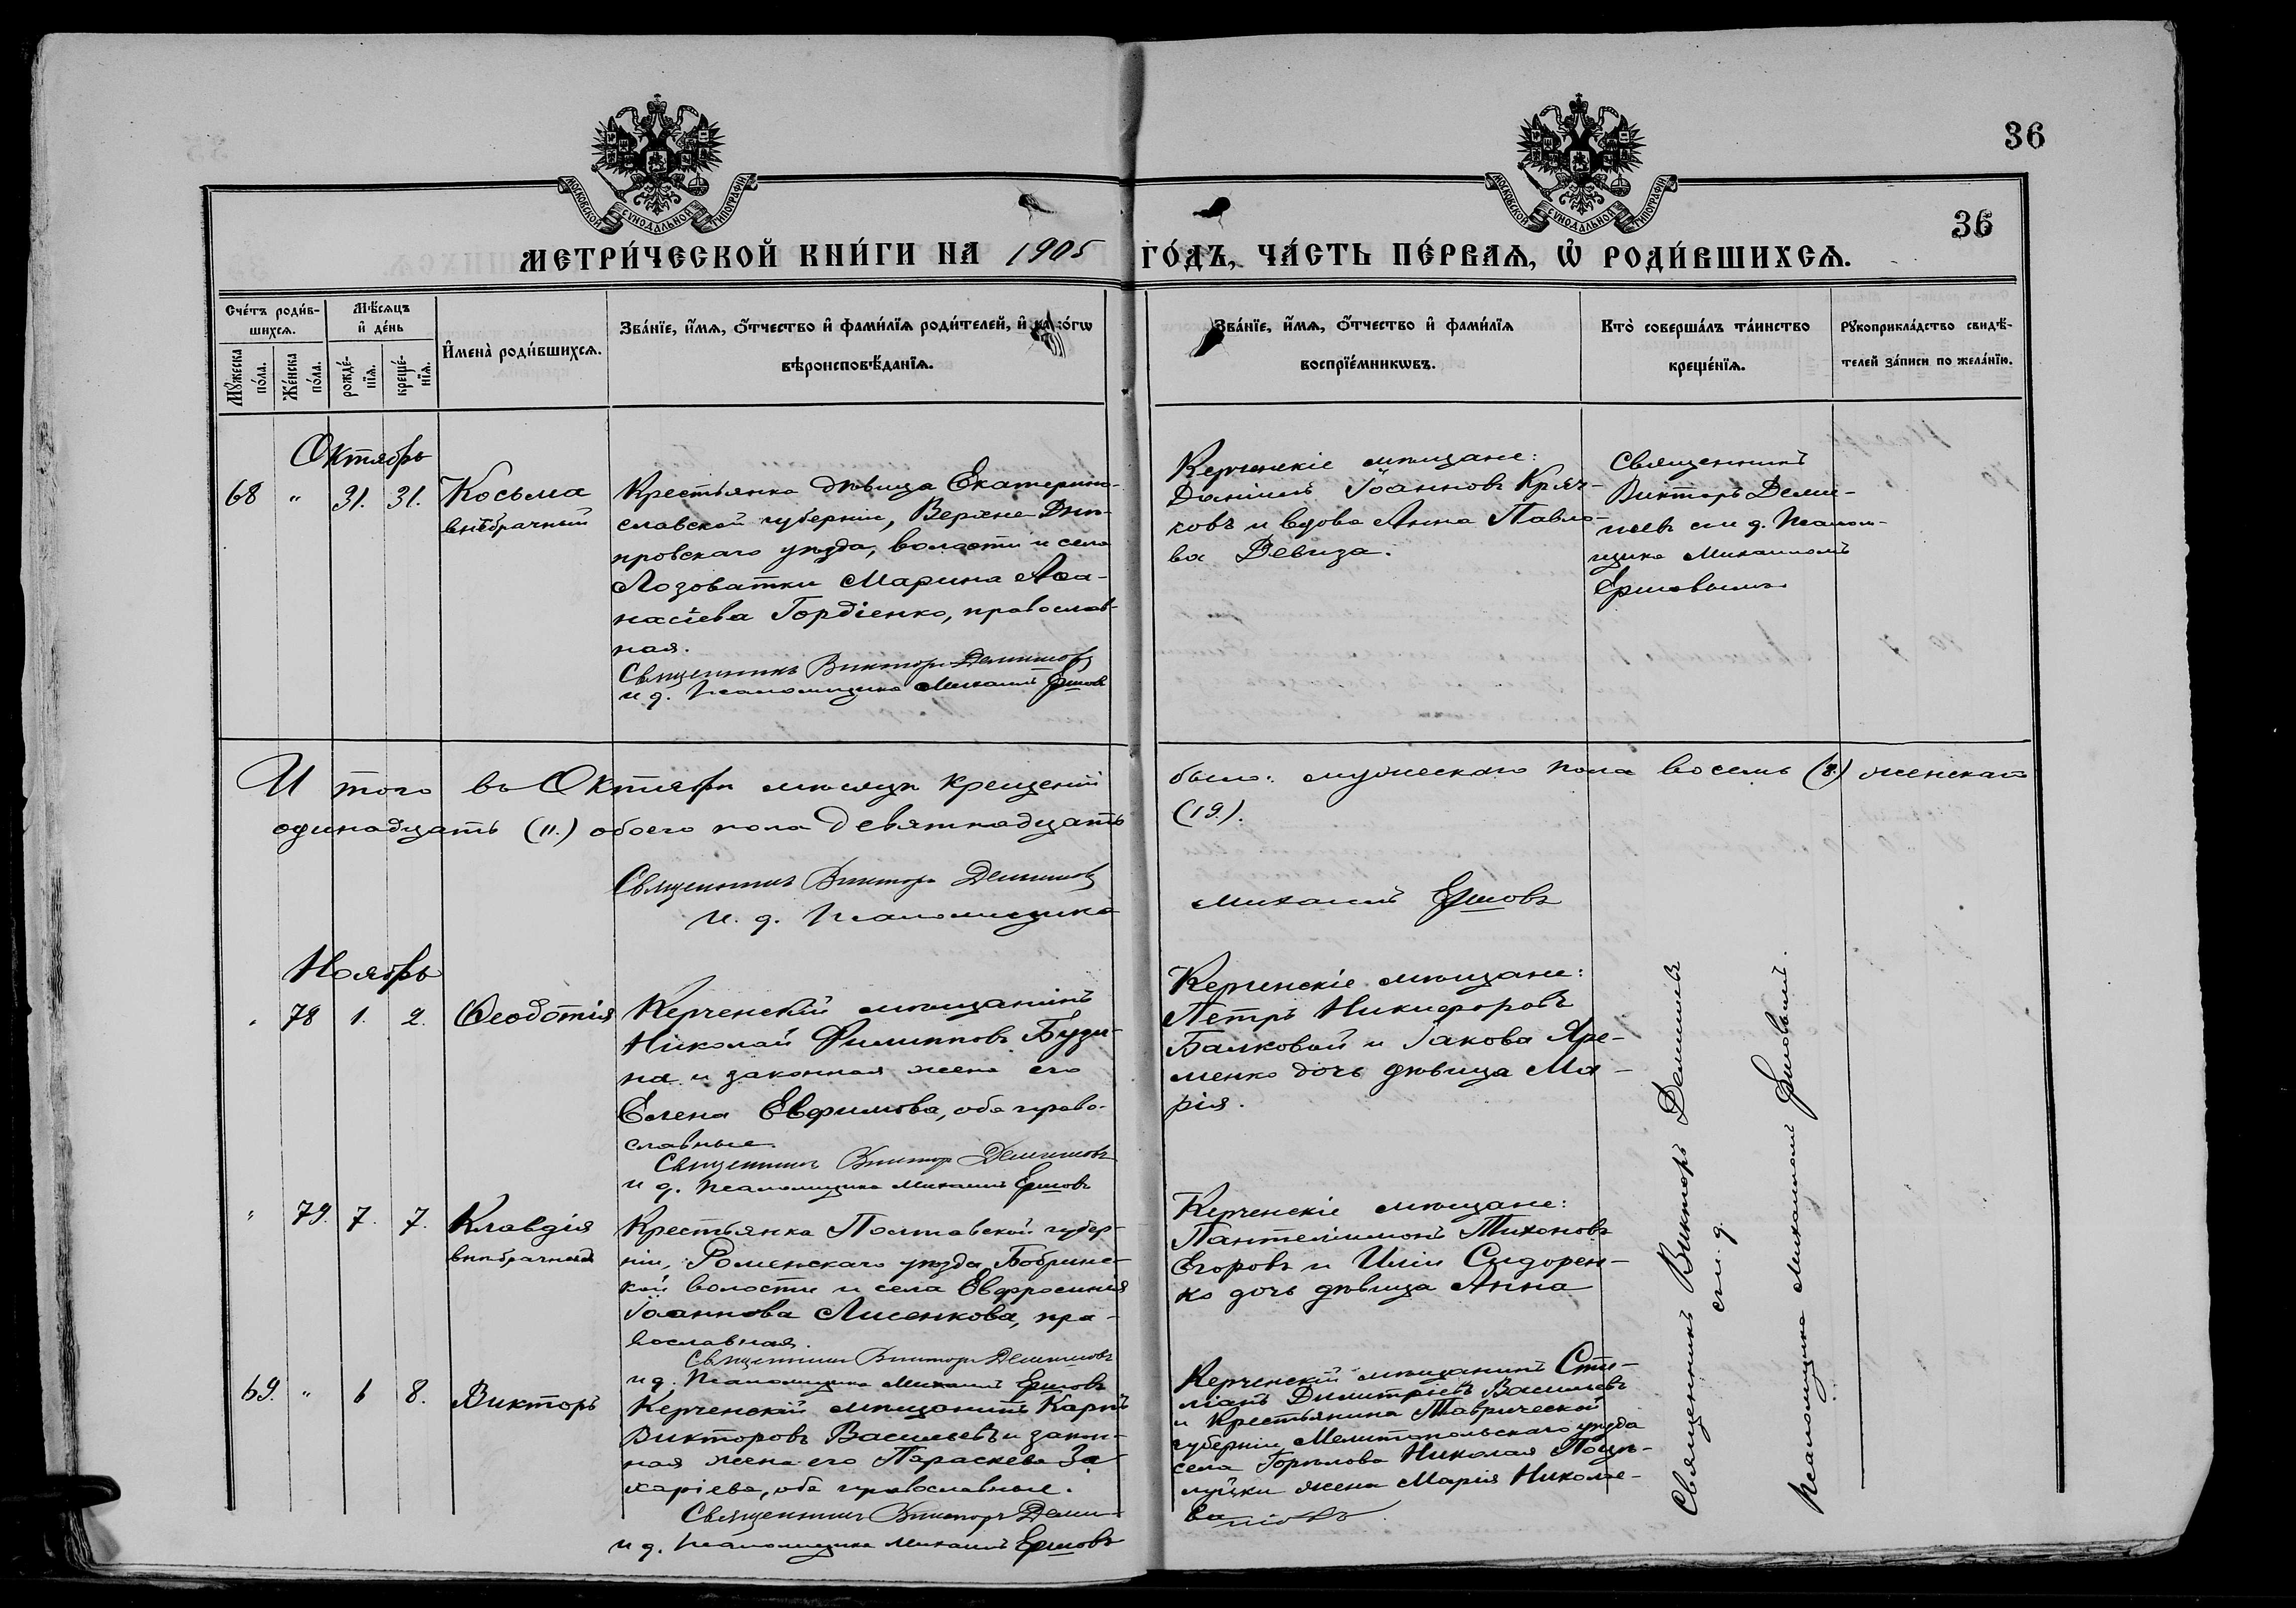 36
36
МОСКОВСКОЙ СУНОДАЛЬНОЙ ТИПОГРАФІИ
МОСКОВСКОЙ СУНОДАЛЬНОЙ ТИПОГРАФІИ
МЕТРИ́ЧЕСКОЙ КНИ́ГИ НА 1905 ГО́ДЪ, ЧА́СТЬ ПЕ́РВАѦ, Ѡ РОДИ́ВШИХСѦ.
Сче́тъ роди́в-
шихсѧ.
Мꙋ́жеска
по́ла.
Же́нска
по́ла.
Мѣ́сѧцъ
и҆ де́нь
рожде́-
нїѧ.
креще́-
нїѧ.
И҆мена̀ роди́вшихсѧ.
Зва́нїе, и҆́мѧ, ѻ҆́тчество и҆ фами́лїѧ роди́телей, и҆ како́гѡ
вѣроисповѣ́данїѧ.
Зва́нїе, и҆́мѧ, ѻ҆́тчество и҆ фами́лїѧ
воспрїе́мникѡвъ.
Кто̀ соверша́лъ та́инство
креще́нїѧ.
Рꙋкоприкла́дство свидѣ́-
телей за́писи по жела́нїю.
Октябрь
68 " 31. 31. Косьма
внѣбрачный
Крестьянка дѣвица Екатерино-
славской губерніи, Верхне Днѣ-
провскаго уѣзда, волости и села
Лозоватки Марина Аѳа-
насіева Гордіенко, православ-
ная.
Священникъ Викторъ Демишевъ
и д. Псаломщика Михаилъ Ершовъ
Керченскіе мѣщане:
Даніилъ Іоанновъ Кряч-
ковъ и вдова Анна Павло-
ва Девиза.
Священникъ
Викторъ Деми-
шевъ съ и д. Псалом-
щика Михаиломъ
Ершовымъ
И того въ Октябрѣ мѣсяцѣ крещеній было: мужескаго пола восемь (8) женскаго
одинадцать (11.) обоего пола девятнадцать (19.).
Священникъ Викторъ Демишевъ
И. д. Псаломщика Михаилъ Ершовъ
Ноябрь
" 78 1. 2. Ѳеодотія
Керченскій мѣщанинъ
Николай Филипповъ Бузи-
на и законная жена его
Елена Евфимова, оба право-
славные.
Священникъ Викторъ Демишевъ
и д. Псаломщика Михаилъ Ершовъ
Керченскіе мѣщане:
Петръ Никифоровъ
Балковой и Іакова Яре-
менко дочь дѣвица Ма-
рія.
" 79. 7. 7. Клавдія
внѣбрачная
Крестьянка Полтавской губер-
ніи, Роменскаго уѣзда Бобринс-
кой волости и села Евфросинія
Іоаннова Лисенкова, пра-
вославная.
Священникъ Викторъ Демишевъ
и д. Псаломщика Михаилъ Ершовъ
Керченскіе мѣщане:
Пантелимонъ Тихоновъ
Егоровъ и Иліи Сидорен-
ко дочь дѣвица Анна
69. " 6 8. Викторъ
Керченскій мѣщанинъ Карпъ
Викторовъ Васильевъ и закон-
ная жена его Параскева За-
харіева, оба православные.
Священникъ Викторъ Деми-
и д. Псаломщика Михаилъ Ершовъ
Керченскій мѣщанинъ Сти-
ліанъ Димитріевъ Васильевъ
и Крестьянина Таврической
губерніи, Мелитопольскаго уѣзда
села Горѣлова Николая
жена Марія Николае-
ва
Священникъ Викторъ Демишевъ
съ и. д.
Псаломщика Михаиломъ Ершовымъ.